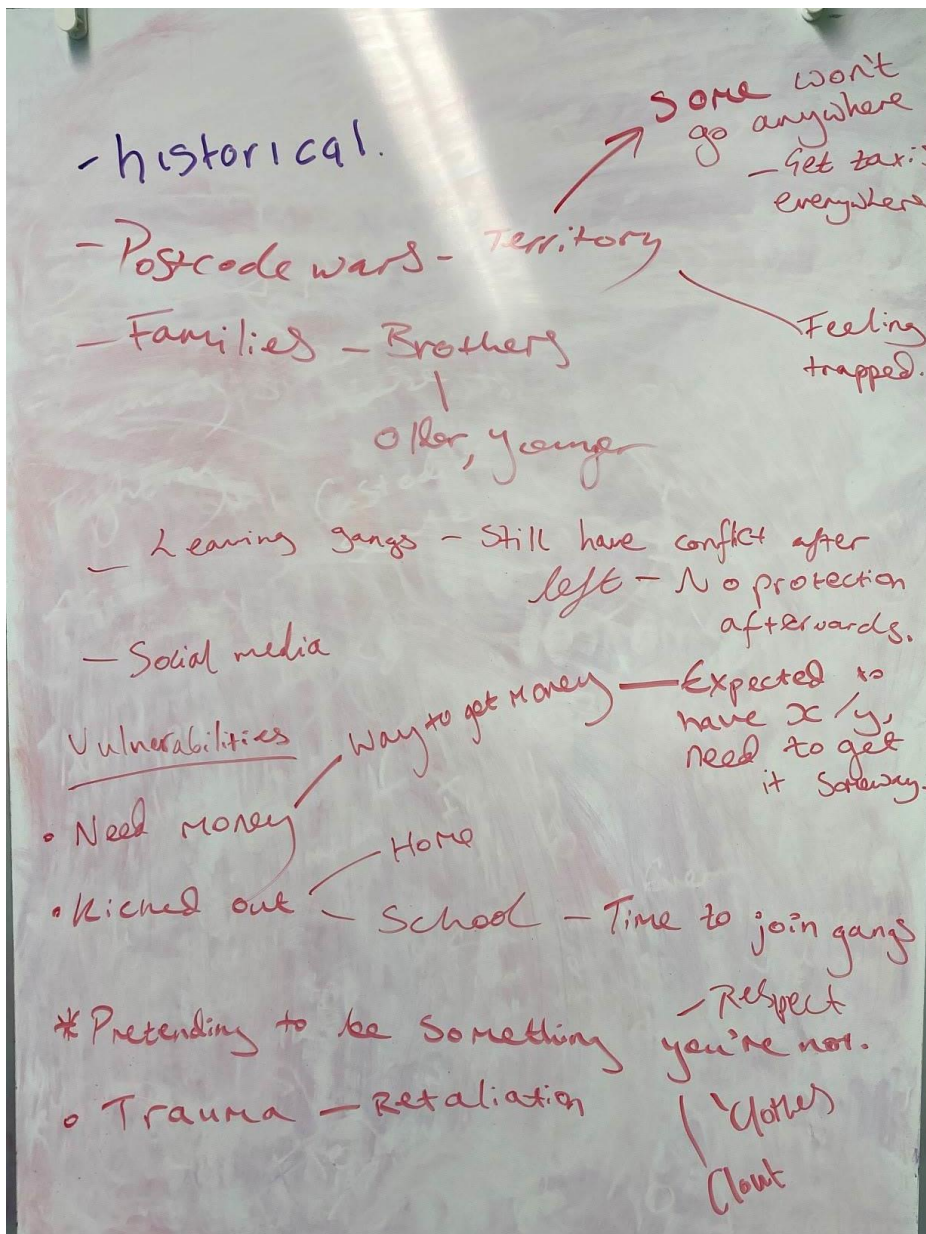 - historical.
Some won't
go anywhere
- Get taxis
everywhere
- Postcode wars - Territory
Feeling
trapped.
- Families - Brothers
older, younger
- Leaving gangs - Still have conflict after
left - No protection
afterwards.
- Social media
Vulnerabilities
way to get money - Expected to
have x/y,
need to get
it someway.
• Need money
• Kicked out
- Home
- School - Time to join gangs
* Pretending to be something you're not.
- Respect
'Clothes
Clout
• Trauma - Retaliation